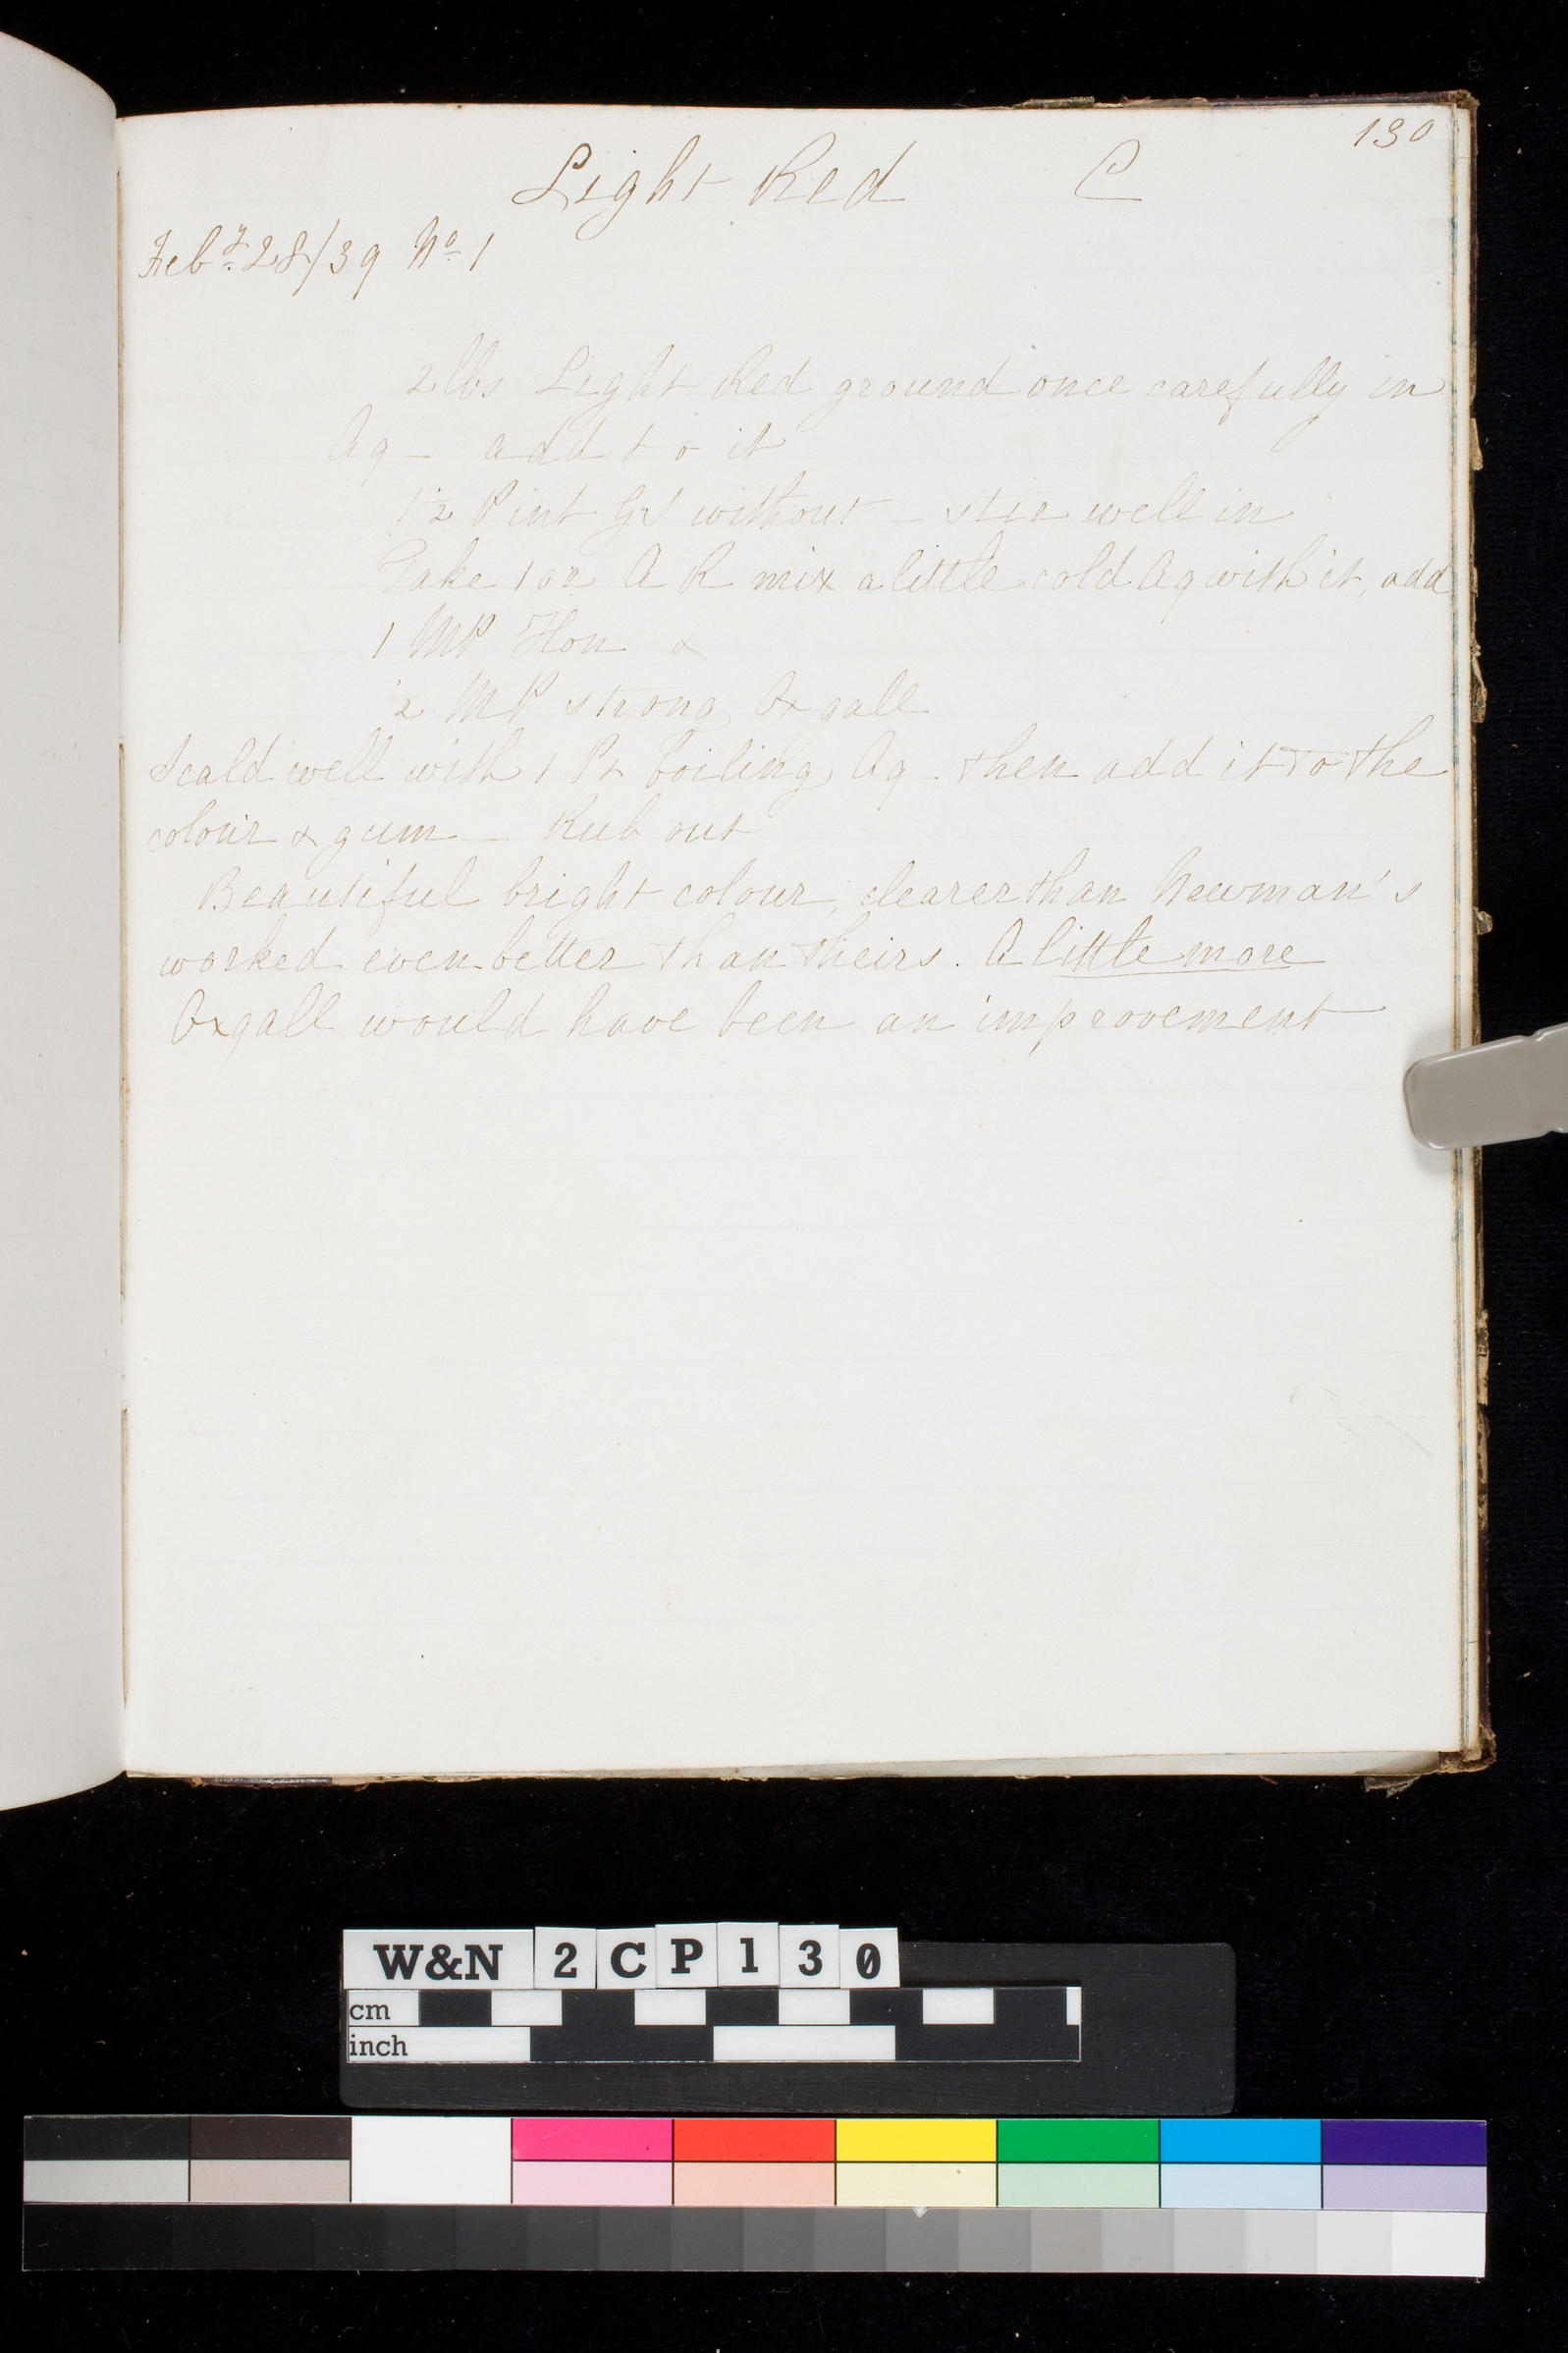 130
Light Red C
Feby 28/39 No 1
2 lbs Light Red ground once carefully in
Aq - add to it
Pint GS without - stir well in
Take 1 oz A R mix a little cold Aq with it, add
1 MP Hon &
2 MP strong Oxgall
Scald well with 1 Pt boiling Aq - then add it to the
colour & gum - Rub out
Beautiful bright colour, clearer than Newman's
worked even better than theirs. A little more
Oxgall would have been an improvement
W&N 2CP130
cm
inch